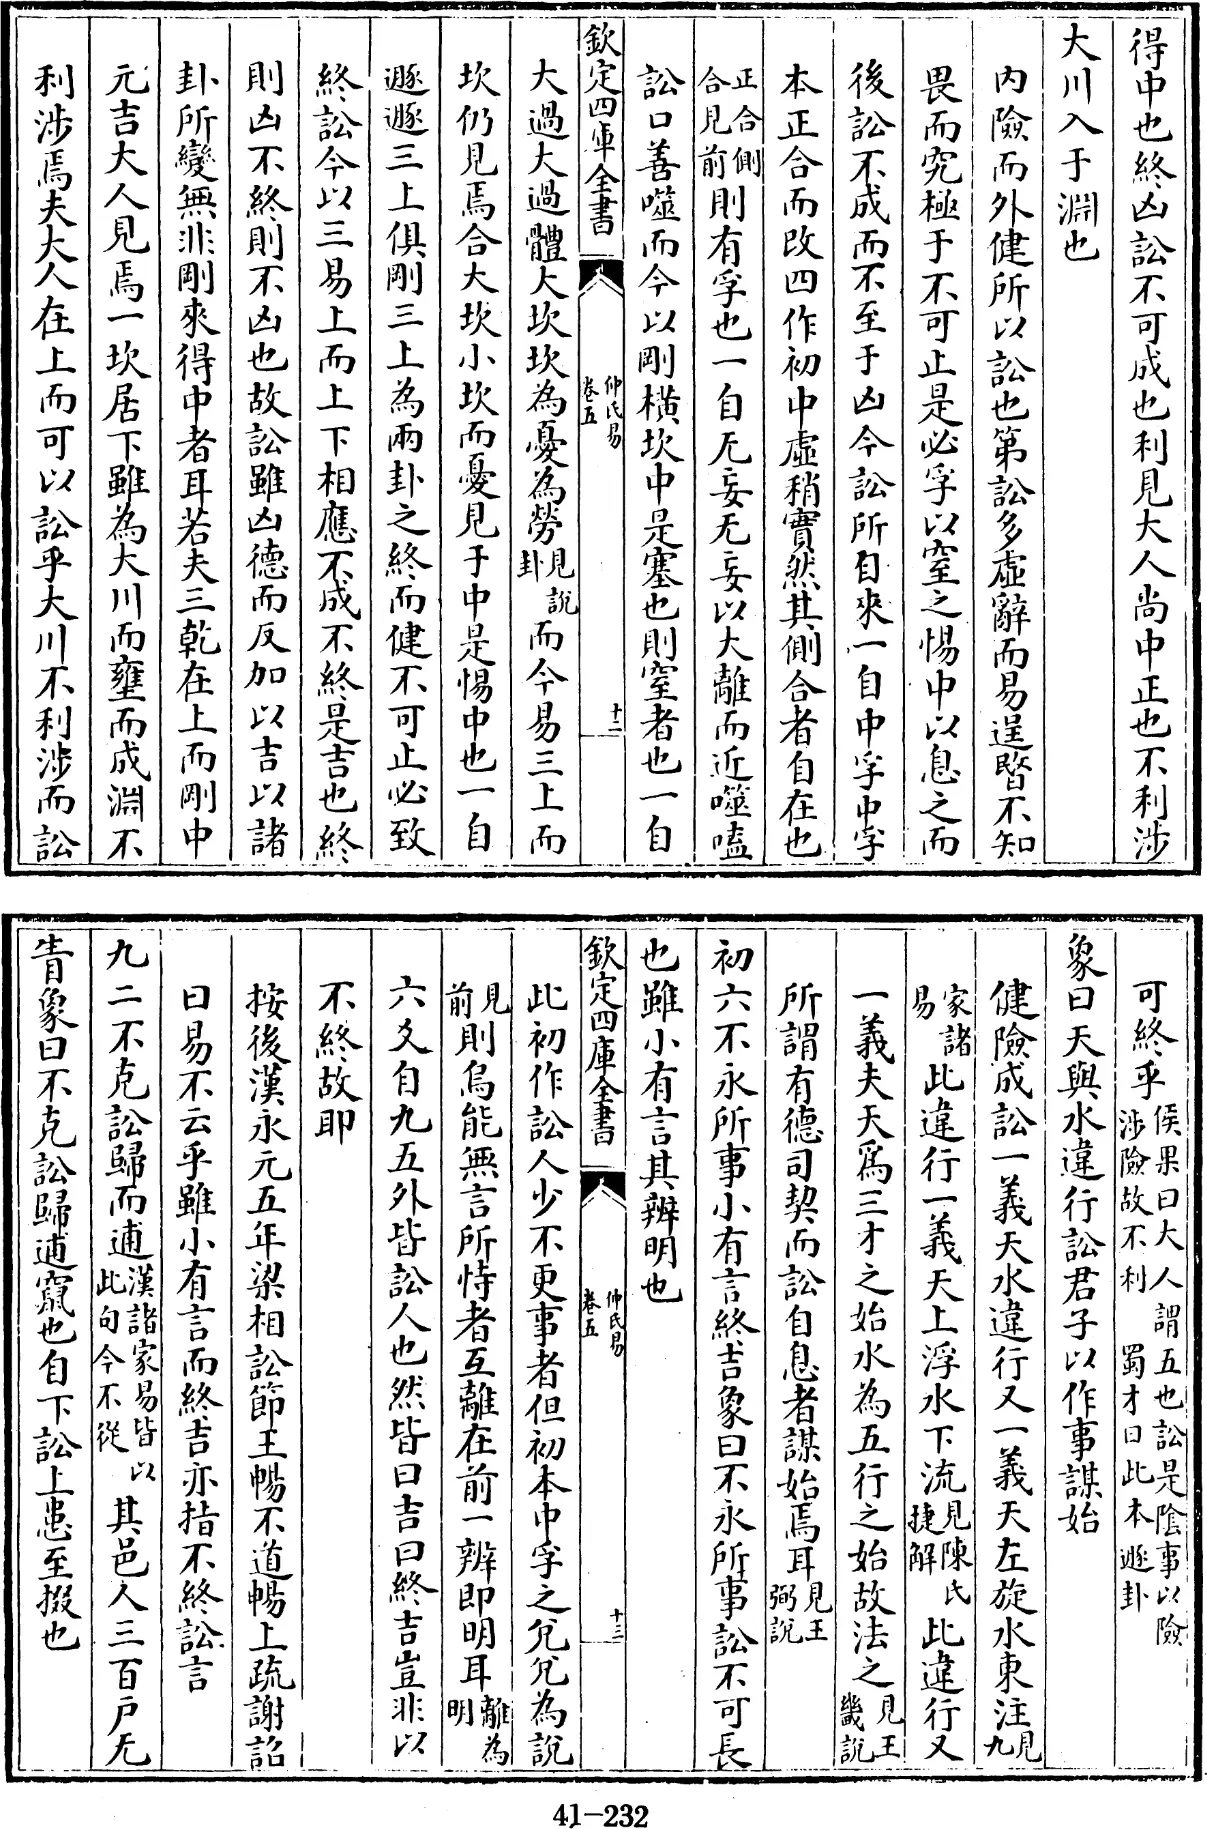 得中也終凶訟不可成也利見大人尚中正也不利涉
大川入于淵也
內險而外健所以訟也第訟多虛辭而易逞暋不知
畏而究極于不可止是必孚以窒之惕中以息之而
後訟不成而不至于凶今訟所自來一自中孚中孚
本正合而改四作初中虛稍實然其側合者自在也
正合側合見前則有孚也一自无妄无妄以大離而近噬嗑
訟口善噬而今以剛橫坎中是塞也則窒者也一自
欽定四庫全書
仲氏易
卷五
十二
大過大過體大坎坎為憂為勞見說卦而今易三上而
坎仍見焉合大坎小坎而憂見于中是惕中也一自
遯遯三上俱剛三上為兩卦之終而健不可止必致
終訟今以三易上而上下相應不成不終是吉也終
則凶不終則不凶也故訟雖凶德而反加以吉以諸
卦所變無非剛來得中者耳若夫三乾在上而剛中
元吉大人見焉一坎居下雖為大川而壅而成淵不
利涉焉夫大人在上而可以訟乎大川不利涉而訟
可終乎侯果曰大人謂五也訟是陰事以險涉險故不利 蜀才曰此本遯卦
象曰天與水違行訟君子以作事謀始
健險成訟一義天水違行又一義天左旋水東注見九
家諸易此違行一義天上浮水下流見陳氏捷解此違行又
一義夫天爲三才之始水為五行之始故法之見王畿說
所謂有德司契而訟自息者謀始焉耳見王弼說
初六不永所事小有言終吉象曰不永所事訟不可長
也雖小有言其辨明也
欽定四庫全書
仲氏易
卷五
十三
此初作訟人少不更事者但初本中孚之兌兌為說
見前則烏能無言所恃者互離在前一辨即明耳離為明
六爻自九五外皆訟人也然皆曰吉曰終吉豈非以
不終故耶
按後漢永元五年梁相訟節王暢不道暢上疏謝詔
曰易不云乎雖小有言而終吉亦指不終訟言
九二不克訟歸而逋漢諸家易皆以此句今不從其邑人三百戶无
眚象曰不克訟歸逋竄也自下訟上患至掇也
41-232